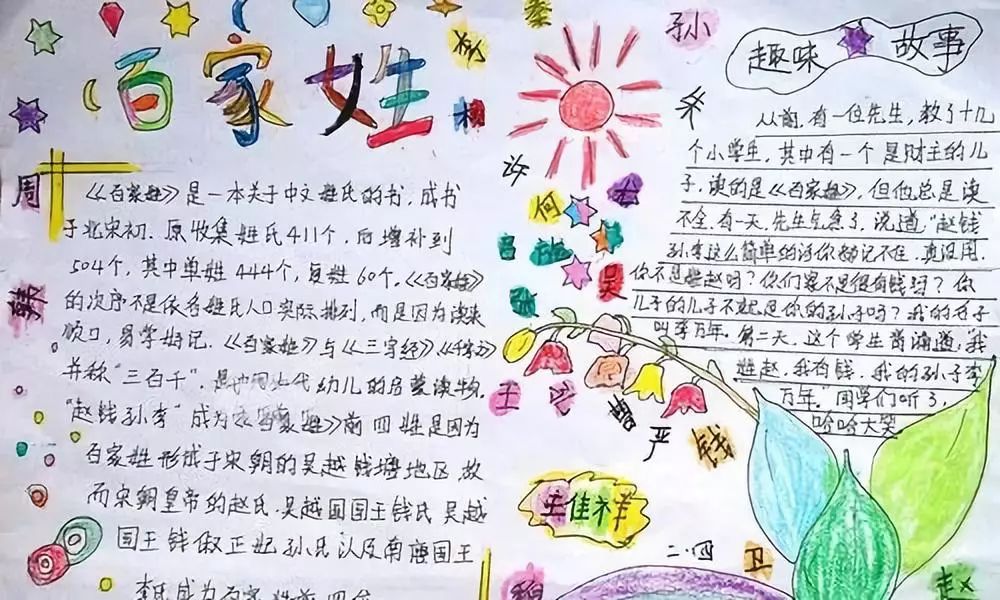 百家姓
周
韩
《百家姓》是一本关于中文姓氏的书，成书
于北宋初．原收集姓氏411个，后增补到
504个，其中单姓444个，复姓60个。《百家姓》
的次序不是依各姓氏人口实际排列，而是因为读来
顺口，易学好记．《百家姓》与《三字经》《千字文》
并称“三百千”．是中国 幼儿的启蒙读物．
“赵钱孙李”成为《百家姓》前四姓是因为
百家姓形成于宋朝的吴越钱塘地区，故
而宋朝皇帝的赵氏．吴越国国王钱氏 吴越
国王钱俶正妃孙氏以及南唐国王
李氏成为百家姓前四位
秦
孙
朱
许
何
吕
张
吴
王
严
钱
李佳祥
二·四
卫
赵
趣味故事
从前，有一位先生，教了十几
个小学生，其中有一个是财主的儿
子，读的是《百家姓》，但他总是读
不全．有一天，先生急了，说道“赵钱
孙李这么简单的话你都记不住．真没用．
你不是姓赵吗？你们家不是很有钱吗？你
儿子的儿子不就是你的孙子吗？我的名字
叫李万年．第二天，这个学生背诵道：“我
姓赵，我有钱．我的孙子李
万年．”同学们听了，
哈哈大笑